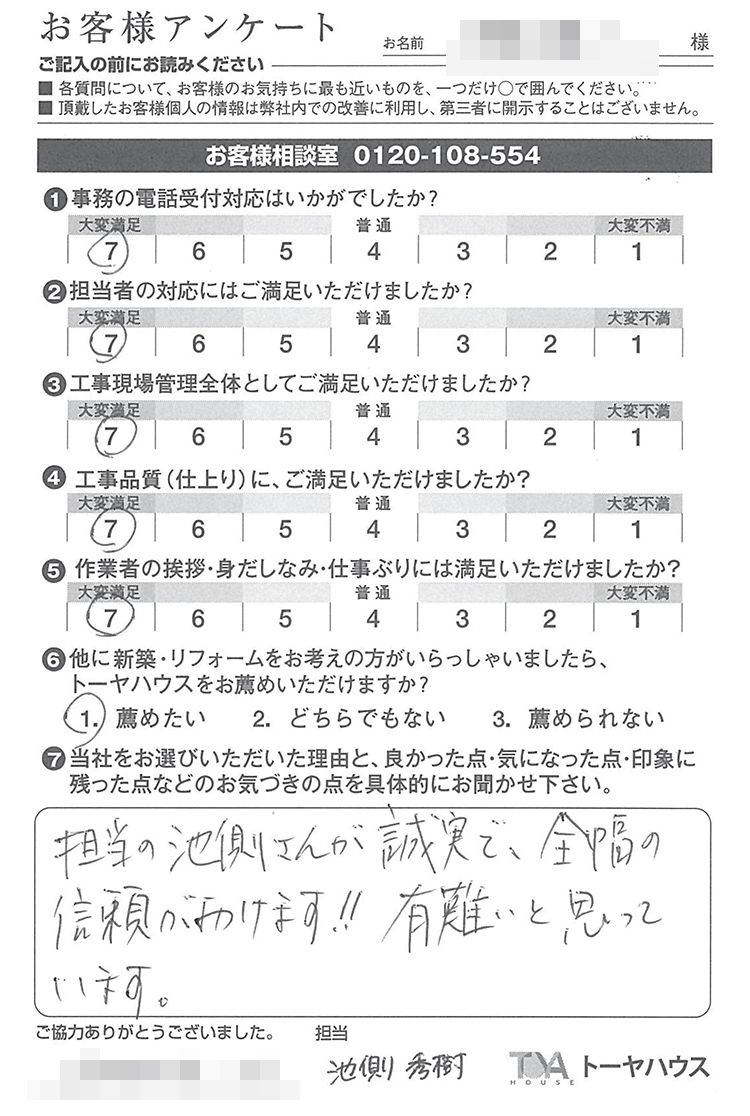 お客様アンケート
お名前 様
ご記入の前にお読みください
■ 各質問について、お客様のお気持ちに最も近いものを、一つだけ〇で囲んでください。
■ 頂戴したお客様個人の情報は弊社内での改善に利用し、第三者に開示することはございません。
お客様相談室 0120-108-554
❶事務の電話受付対応はいかがでしたか?
大変満足 普通 大変不満
7 6 5 4 3 2 1
❷担当者の対応にはご満足いただけましたか?
大変満足 普通 大変不満
7 6 5 4 3 2 1
❸工事現場管理全体としてご満足いただけましたか?
大変満足 普通 大変不満
7 6 5 4 3 2 1
❹工事品質(仕上り)に、ご満足いただけましたか?
大変満足 普通 大変不満
7 6 5 4 3 2 1
❺作業者の挨拶・身だしなみ・仕事ぶりには満足いただけましたか?
大変満足 普通 大変不満
7 6 5 4 3 2 1
❻他に新築・リフォームをお考えの方がいらっしゃいましたら、
トーヤハウスをお薦めいただけますか?
1. 薦めたい 2. どちらでもない 3. 薦められない
❼当社をお選びいただいた理由と、良かった点・気になった点・印象に
残った点などのお気づきの点を具体的にお聞かせ下さい。
担当の池側さんが誠実で、全幅の
信頼がおけます!! 有難いと思って
います。
ご協力ありがとうございました。 担当
池側 秀樹 TOYA HOUSE トーヤハウス